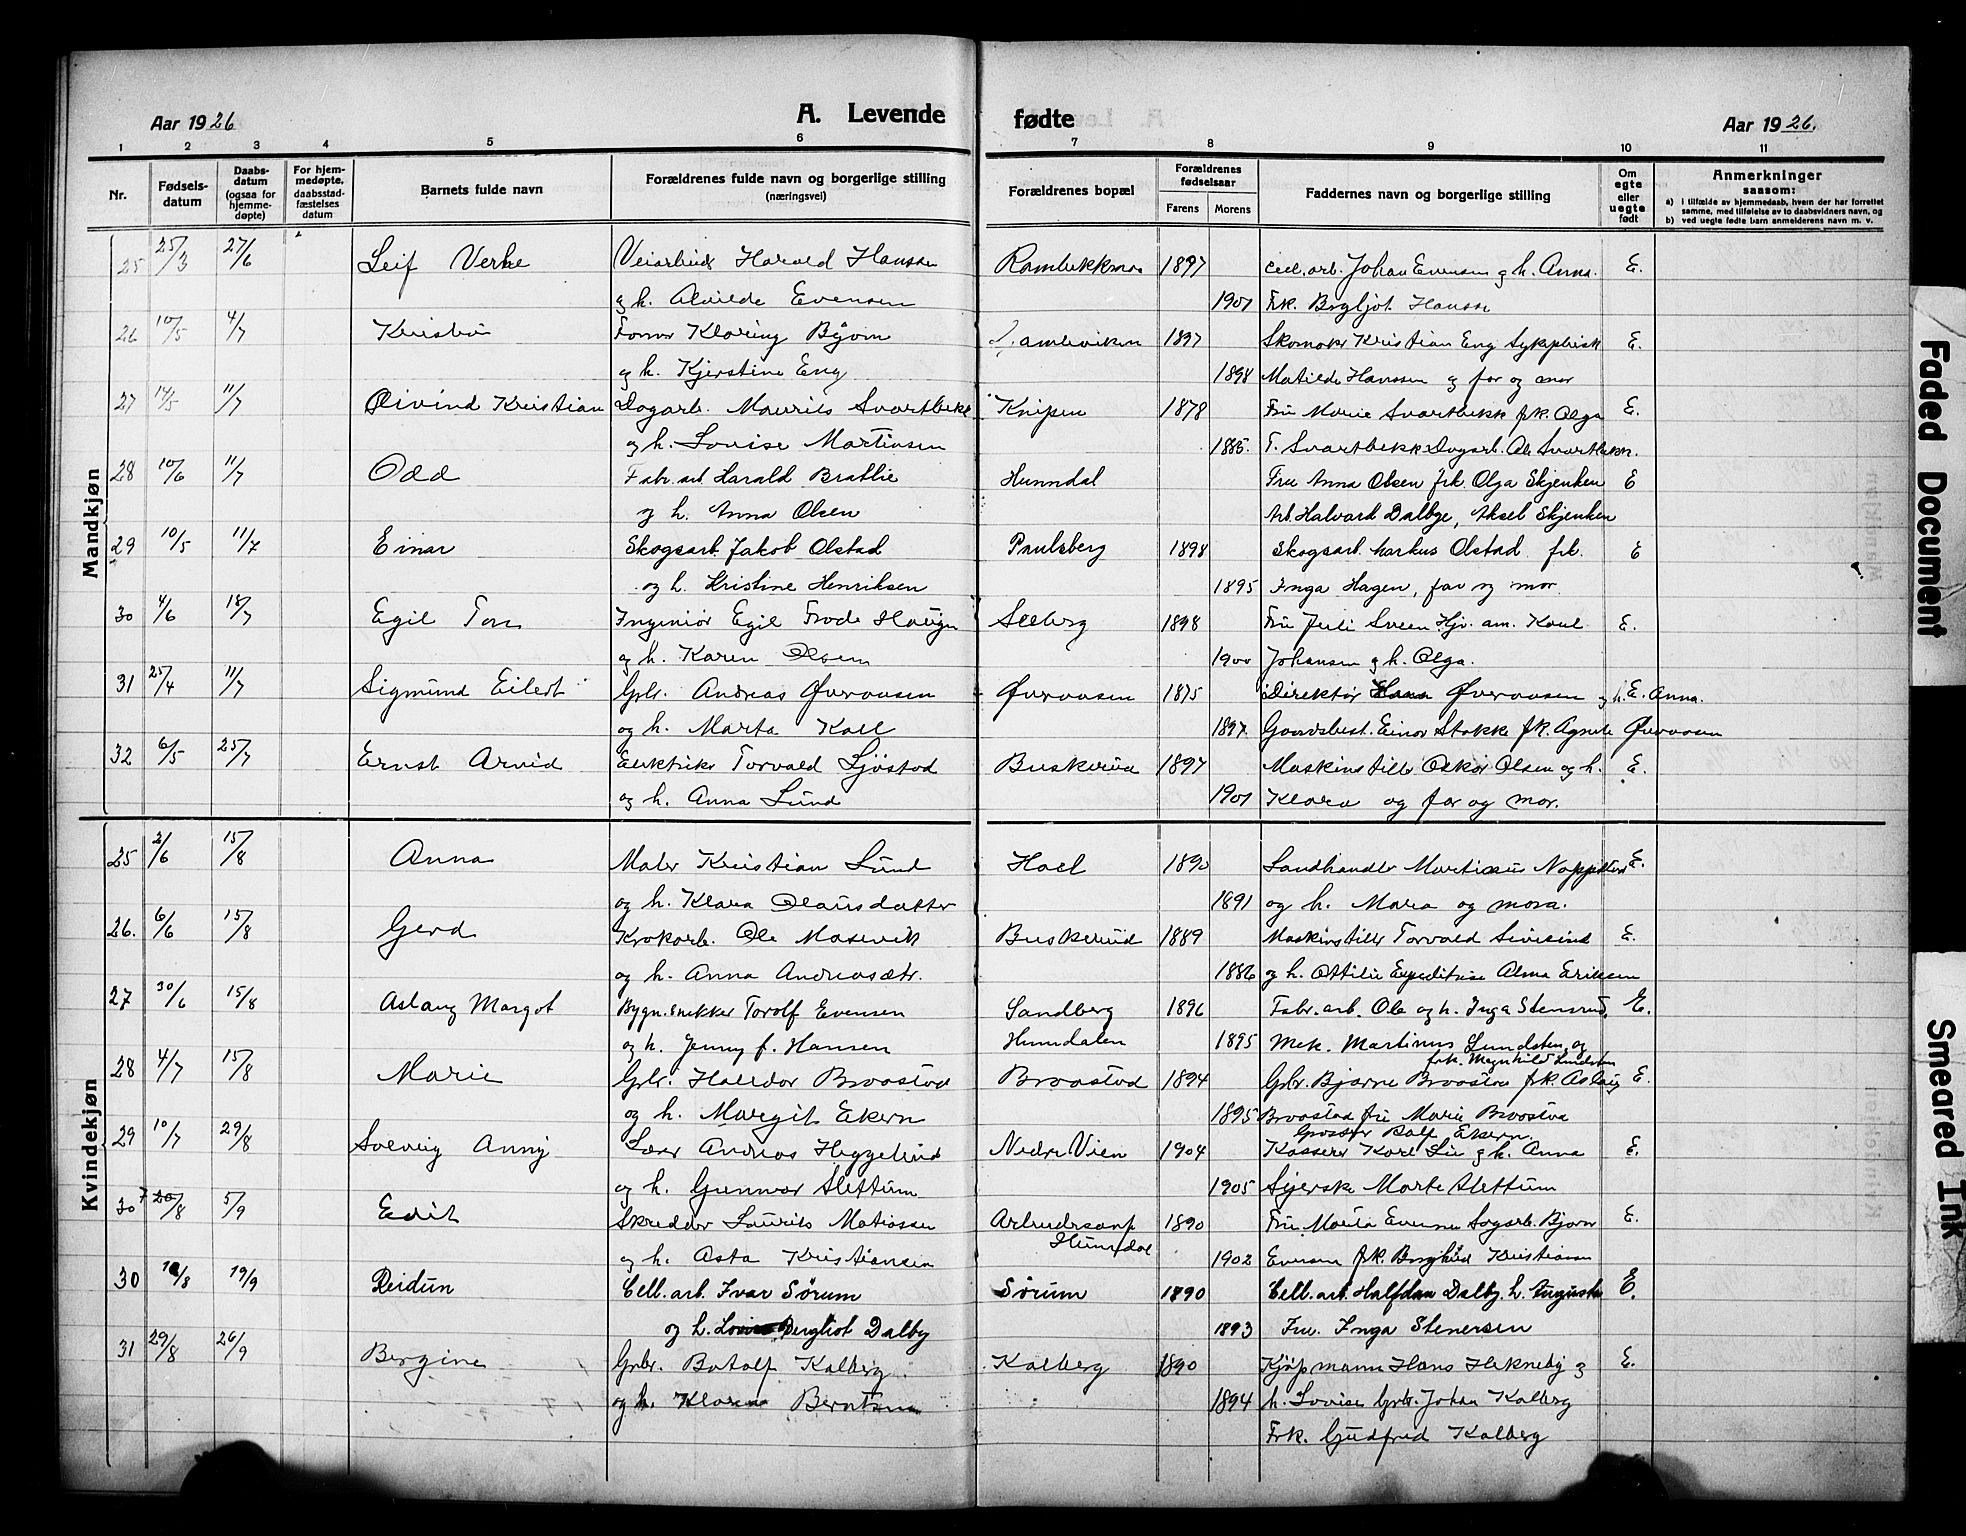 Aar 1926
A. Levende
fødte
Aar 1926.
1 2 3 4 5 6 7 8 9 10 11
Nr.
Fødsels-
datum
Daabs-
datum
(ogsaa for
hjemme-
døpte)
For hjem-
medøpte,
daabsstad-
fæstelses
datum
Barnets fulde navn
Forældrenes fulde navn og borgerlige stilling
(næringsvei)
Forældrenes bopæl
Forældrenes
fødselsaar
Farens Morens
Faddernes navn og borgerlige stilling
Om
egte
eller
uegte
født
Anmerkninger
saasom:
a) i tilfælde av hjemmedaab, hvem der har forrettet
samme, med tilføielse av to daabsvidners navn, og
b) ved uegte fødte barn anmelderens navn m. v.
Mandkjøn
25 25/3 27/6 Leif Verke Harald Hansen 1897 Johan Evensen og h. Anna. E.
og h. Alvilde Evensen 1901 Frk. Bergljot
26 10/5 4/7 1897 Skomaker Kristian Eng E.
og h. Kjerstine Eng 1898 Matilde Hanssen og far og mor
27 14/5 11/7 Øivind Kristian Dagarb. Maurits Svartbekk Knipen 1878 Fru Marie Svartbekk frk. Olga E.
og h. Lovise Martinsen 1885. T. Svartbekk Dagarb. Ole Svartbekk.
28 10/6 11/7 Odd Fabr. arb. Harald Brathlie Hunndal Fru Anna Olsen frk. Olga Skjenken E
og h. Anna Olsen Arb. Halvard Dalbye, Aksel Skjenken
29 10/5 11/7 Einar Skogsarb. Jakob Olstad Paulsberg 1898 Skogsarb. Markus Olstad frk. E
og h. Kristine Henriksen 1895 Inga Hagen, far og mor.
30 4/6 18/7 Egil Ingeniør Egil Frode 1898 Fru E.
og h. Karen Olsen 1900 Johansen og h. Olga.
31 25/4 11/7 Sigmund Eilert Gbr. Andreas Øveraasen Øveraasen 1875 Direktør Øveraasen og h. E. Anna.
og h. Marta Koll 1897. Gaardsbest. Einar Stokke frk. Agnete Øveraasen
32 6/5 25/7 Ernst Arvid Torvald Sjøstad Buskerud 1897 Maskinstiller Oskar Olsen og h. E.
og h. Anna Lund 1901 Klara og far og mor.
Kvindekjøn
25 2/6 15/8 Anna Maler Kristian Lund Hoel 1890 E.
og h. Klara Olausdatter 1891 og h. Maria og mora.
26. 6/6 15/8 Gerd Krokarb. Ole Buskerud 1889 Maskinstiller Torvald E.
og h. Anna Andreasdtr. 1886 og h. Ottilie Expeditrise Alma Eriksen
27 30/6 15/8 Aslaug Margot Bygn. snekker Torolf Evensen Sandberg 1896 Fabr. arb. Ole og h. Inga Stensrud. E.
og h. Jenny f. Hansen Hunndalen 1895 Mek. Martinus Lundsten og
frk. Magnhild Lundsten
28 4/7 15/8 Marie Gbr. Halvdor Braastad Braastad 1894 Gbr. Bjarne Braastad frk. Aslaug E.
og h. Margit Ekern 1895 Braastad fru Marie Braastad
Grosser Rolf Ekern.
29 10/7 29/8 Solveig Anny Lærer Andreas Heggelund Nedre Vien 1904 Kasserer Karl Lie og h. Anna E.
og h. Gunnvor Slettum 1905 Syerske Marte Slettum
30 7 20/8 5/9 Edit Skredder Laurits Matiassen 1890 Fru E.
Hunndal
og h. Asta Kristiansen 1902 Evensen frk. Borghild Kristiansen
30 10/8 19/9 Reidun Cell. arb. Ivar Sørum Sørum 1890 Cell. arb. Halfdan Dalby. h. Augusta E.
og h. Bergliot Dalby 1893 Fru. Inga Stenersen
31 29/8 26/9 Bergine Gbr. Botolf Kalberg Kalberg 1890 Kjøpmann Hans Hekneby og E.
og h. Klara Berntsen 1894 h. Lovise Gbr. Johan Kalberg
Frk. Gudfrid Kalberg
Faded Document
Smeared Ink